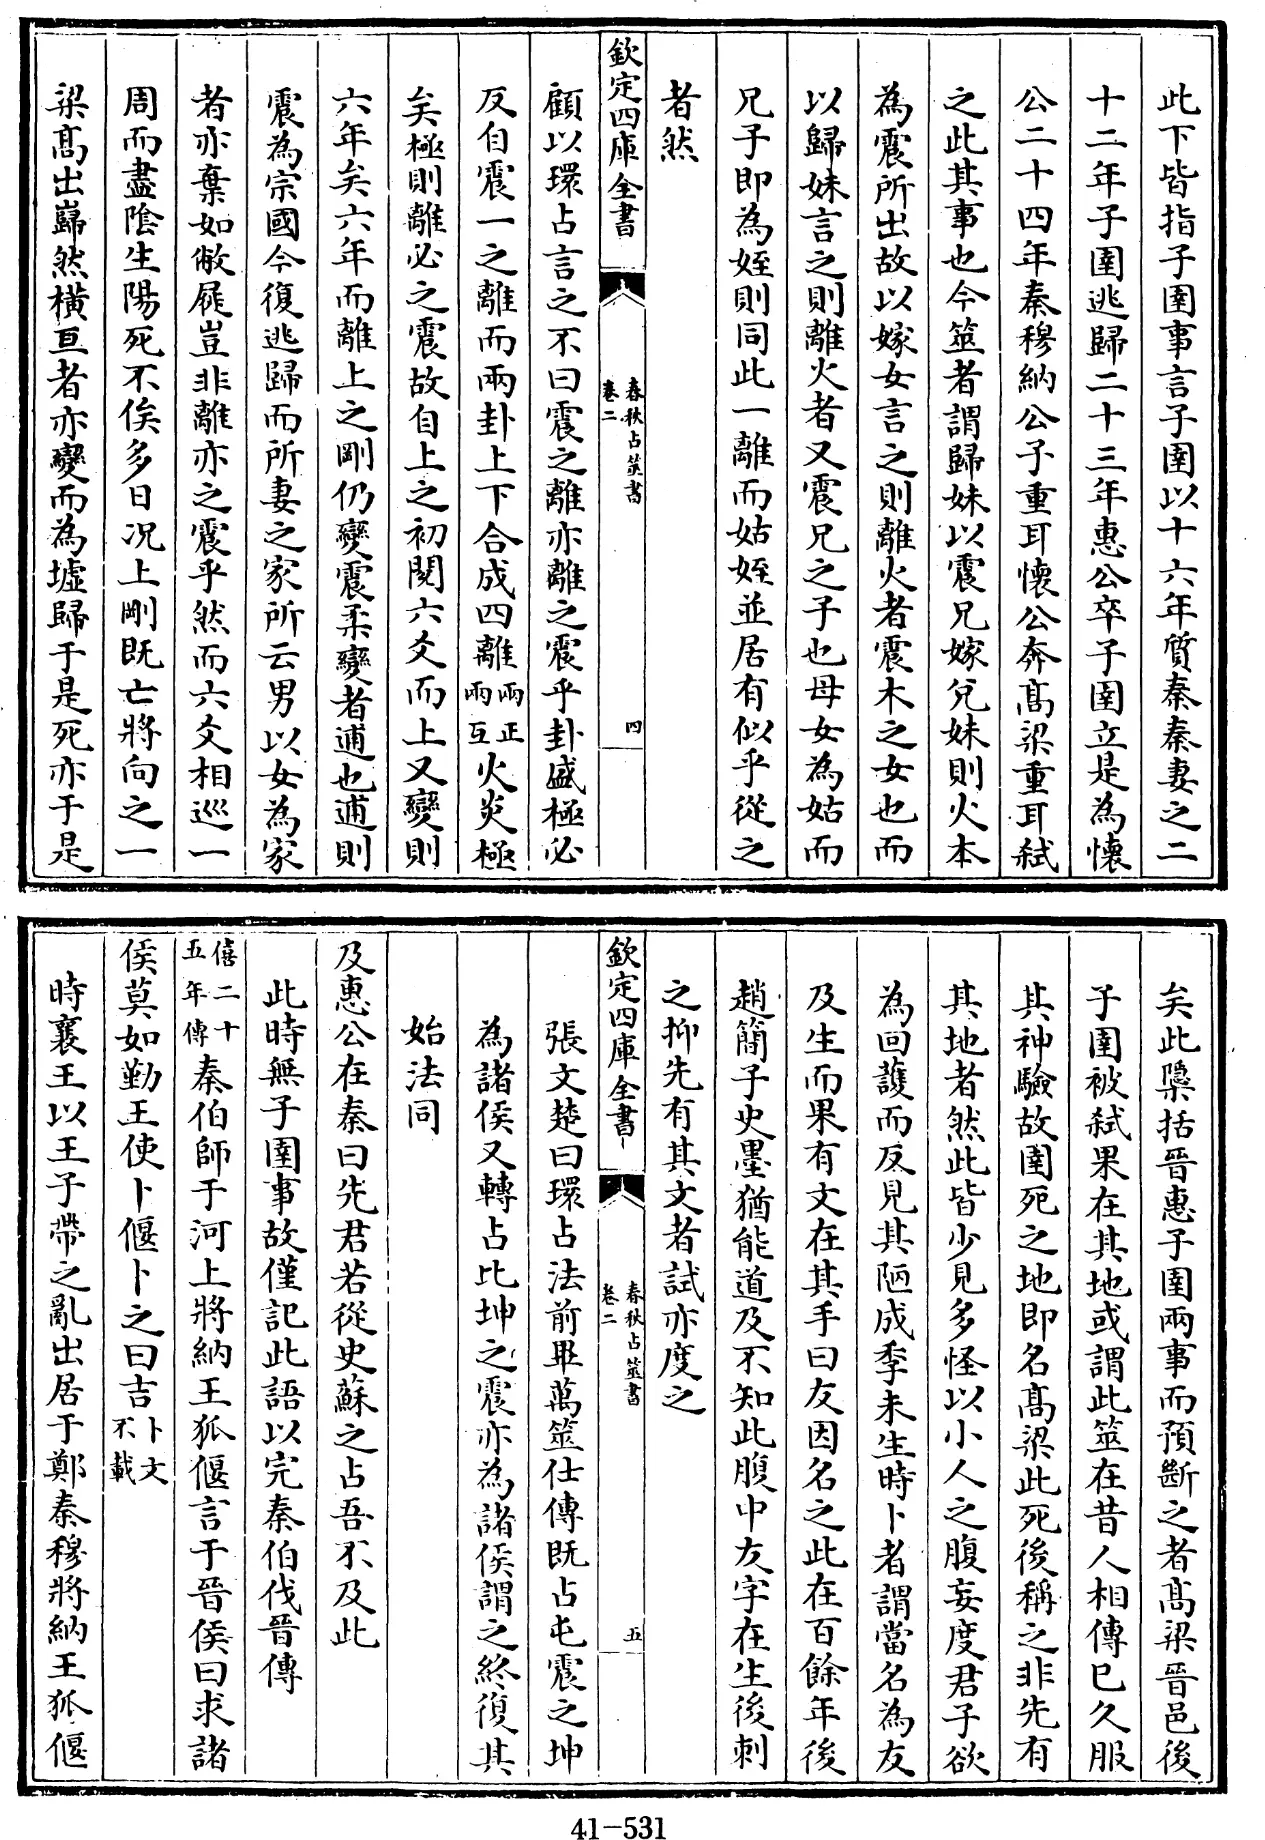 此下皆指子圉事言子圉以十六年質秦秦妻之二
十二年子圉逃歸二十三年惠公卒子圉立是為懷
公二十四年秦穆納公子重耳懷公奔髙梁重耳弑
之此其事也今筮者謂歸妹以震兄嫁兌妹則火本
為震所出故以嫁女言之則離火者震木之女也而
以歸妹言之則離火者又震兄之子也母女為姑而
兄子即為姪則同此一離而姑姪並居有似乎從之
者然
欽定四庫全書
春秋占筮書
卷二
四
顧以環占言之不曰震之離亦離之震乎卦盛極必
反自震一之離而兩卦上下合成四離兩正兩互火炎極
矣極則離必之震故自上之初閱六爻而上又變則
六年矣六年而離上之剛仍變震柔變者逋也逋則
震為宗國今復逃歸而所妻之家所云男以女為家
者亦棄如敝屣豈非離亦之震乎然而六爻相巡一
周而盡陰生陽死不俟多日况上剛既亡將向之一
梁髙出巋然橫亘者亦變而為墟歸于是死亦于是
矣此檃括晉惠子圉兩事而預斷之者髙梁晉邑後
子圉被弑果在其地或謂此筮在昔人相傳已久服
其神驗故圉死之地即名髙梁此死後稱之非先有
其地者然此皆少見多怪以小人之腹妄度君子欲
為回護而反見其陋成季未生時卜者謂當名為友
及生而果有文在其手曰友因名之此在百餘年後
趙簡子史墨猶能道及不知此腹中友字在生後刺
之抑先有其文者試亦度之
欽定四庫全書
春秋占筮書
卷二
五
張文楚曰環占法前畢萬筮仕傳既占屯震之坤
為諸侯又轉占比坤之震亦為諸侯謂之終復其
始法同
及惠公在秦曰先君若從史蘇之占吾不及此
此時無子圉事故僅記此語以完秦伯伐晉傳
僖二十五年傳秦伯師于河上將納王狐偃言于晉侯曰求諸
侯莫如勤王使卜偃卜之曰吉卜文不載
時襄王以王子帶之亂出居于鄭秦穆將納王狐偃
41-531